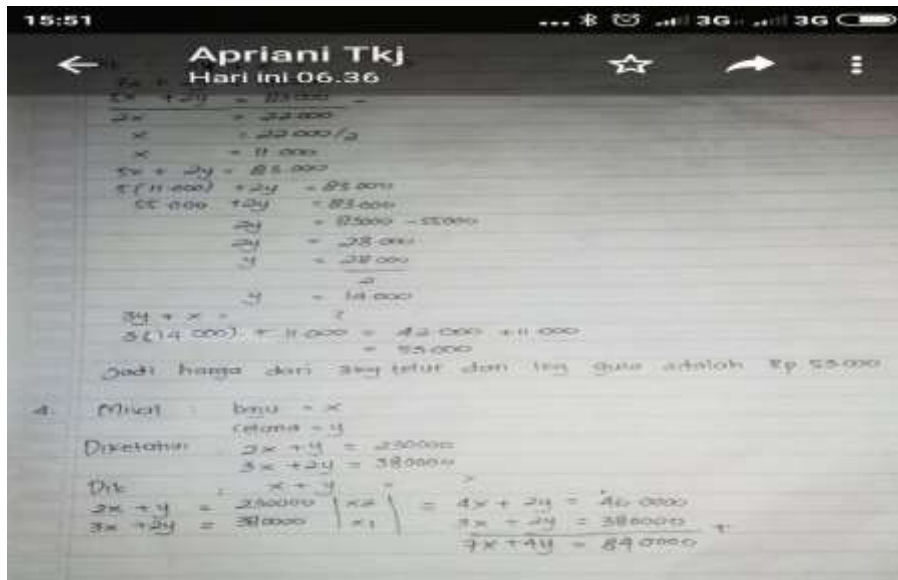 15:51
3G 3G
Apriani Tkj
Hari ini 06.36
5x + 2y = 83.000 -
2x = 22.000
x = 22.000/2
x = 11.000
5x + 2y = 83.000
5(11.000) + 2y = 83.000
55.000 + 2y = 83.000
2y = 83000 - 55000
2y = 28.000
y = 28.000
2
y = 14.000
3y + x = ?
3(14.000) + 11.000 = 42.000 + 11.000
= 53.000
Jadi harga dari 3kg telur dan 1kg gula adalah Rp 53.000
4. Misal : baju = x
celana = y
Diketahui : 2x + y = 230000
3x + 2y = 380000
Dit : x + y = ?
2x + y = 230000 | x2 | = 4x + 2y = 460000
3x + 2y = 380000 | x1 | 3x + 2y = 380000 +
7x + 4y = 840000